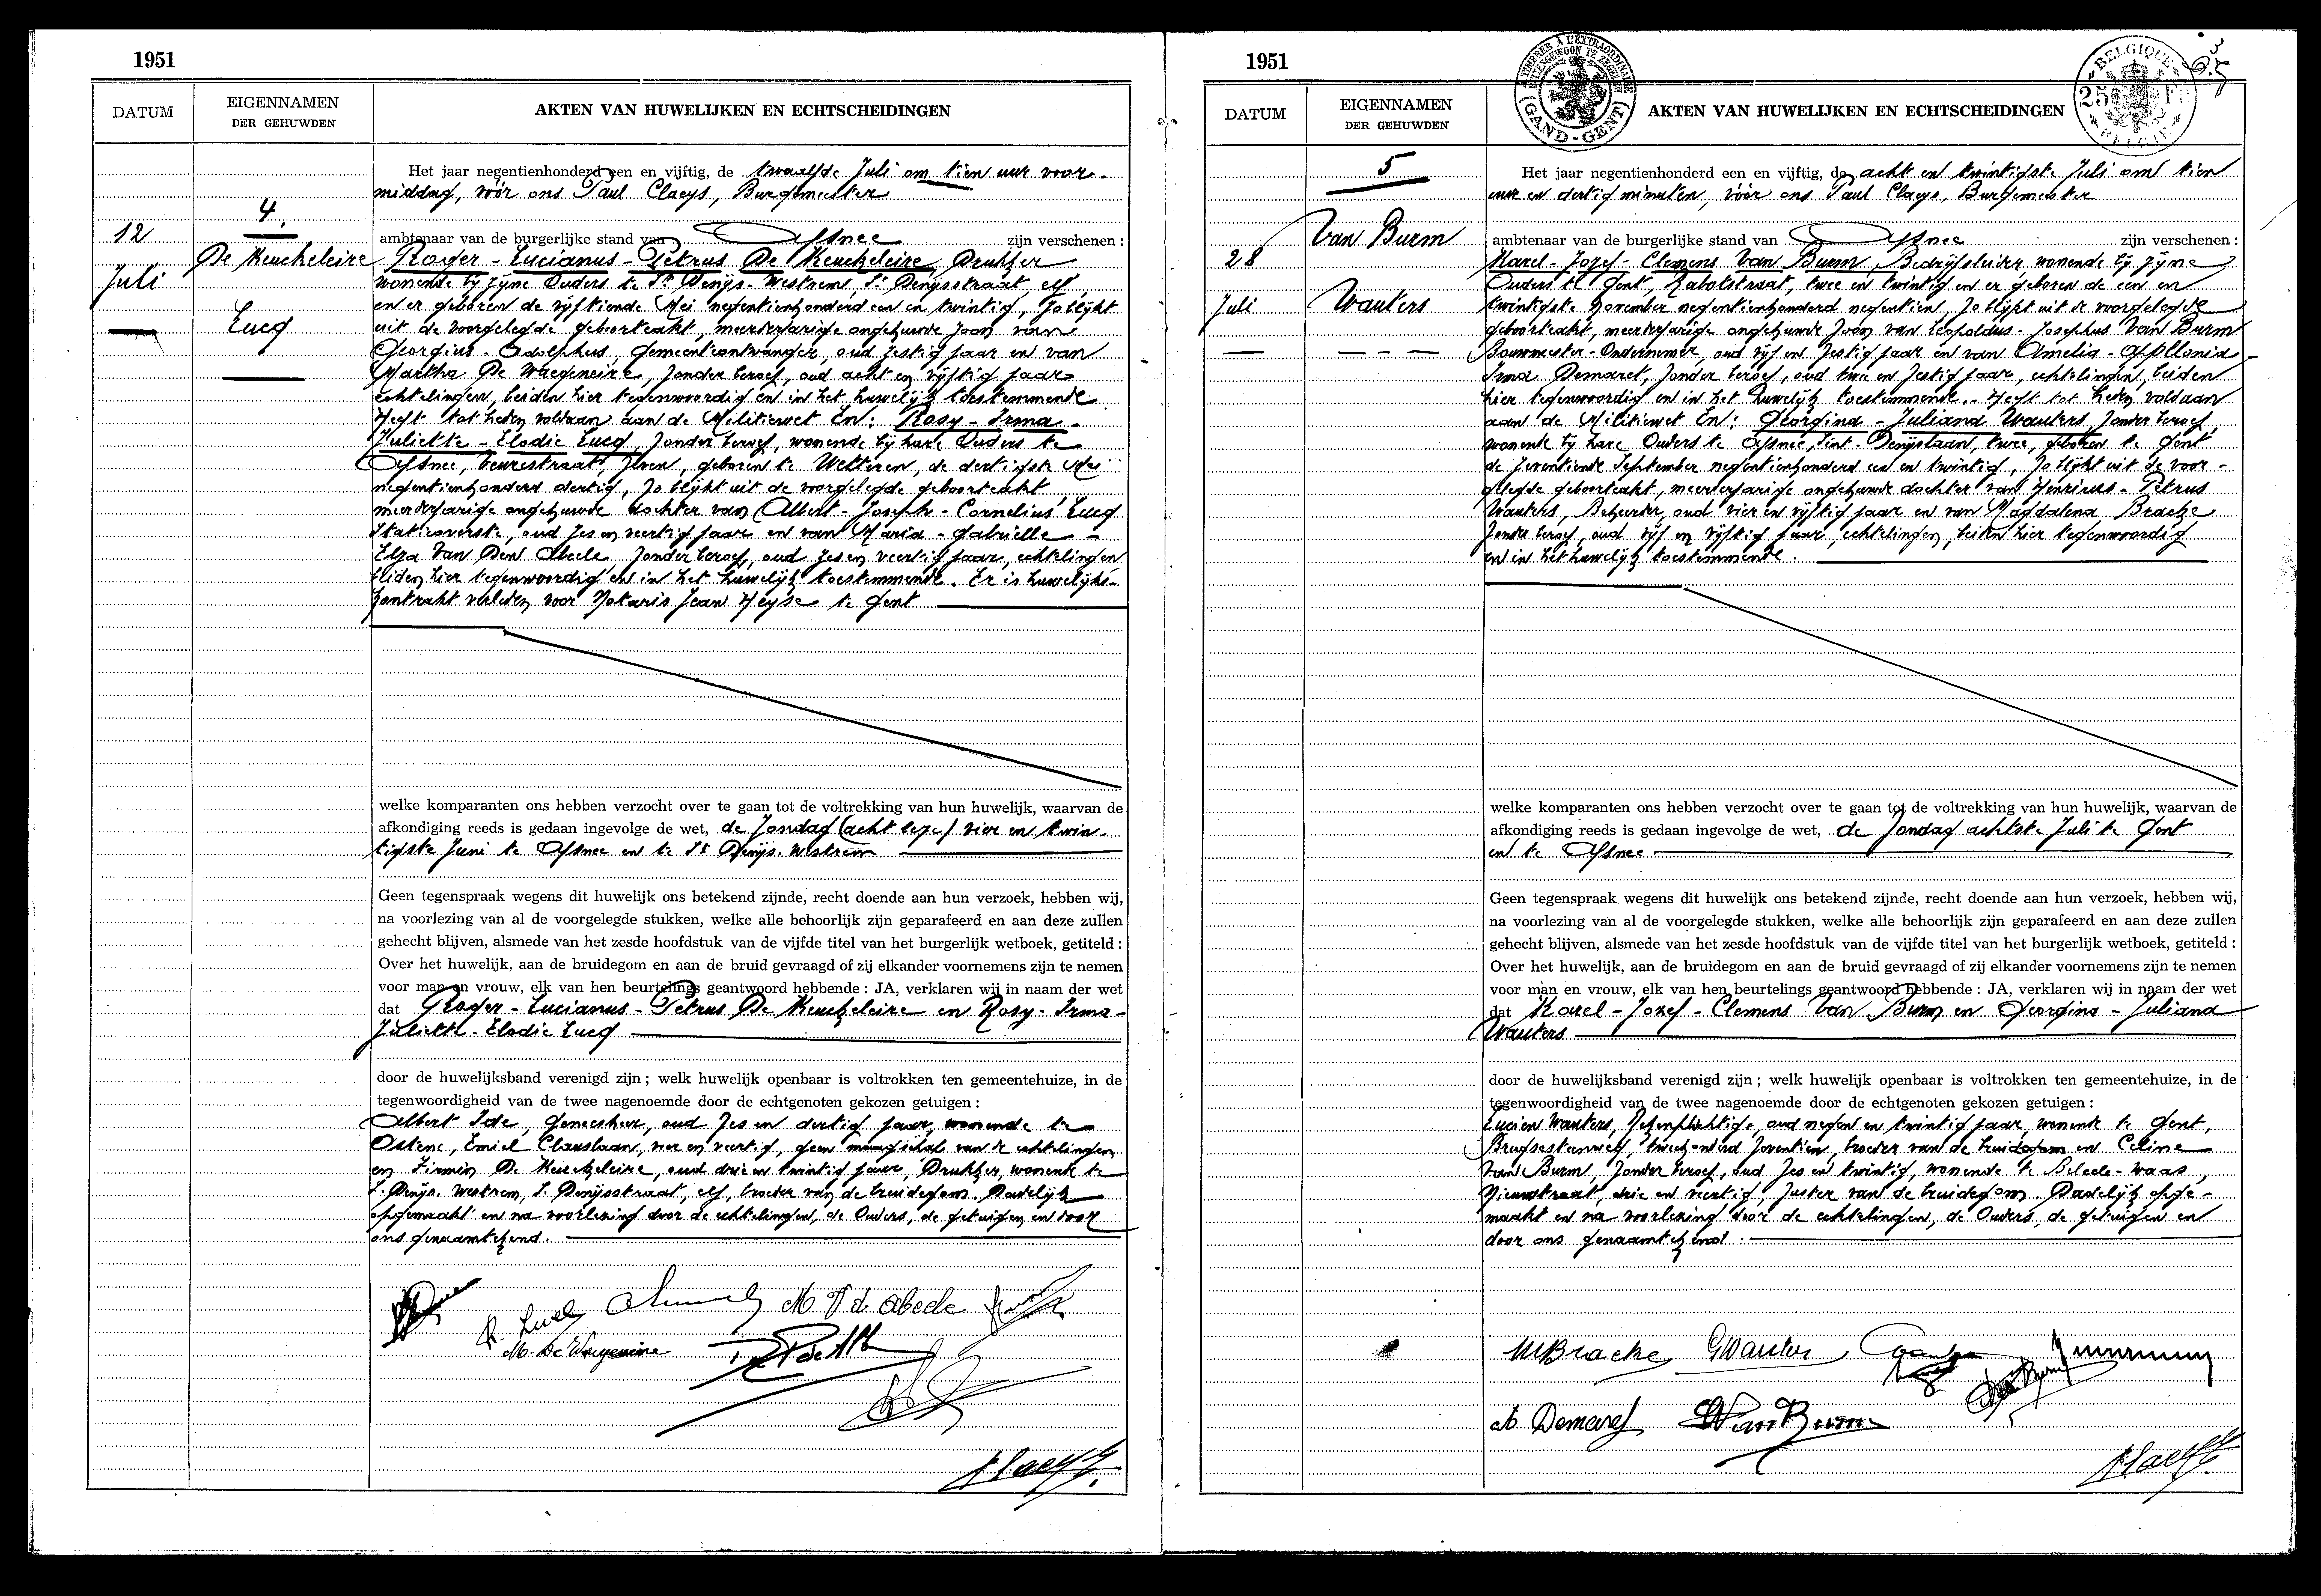 1951
DATUM
EIGENNAMEN
DER GEHUWDEN
AKTEN VAN HUWELIJKEN EN ECHTSCHEIDINGEN
12
Juli
4.
De Keuckeleire
Lucq
Het jaar negentienhonderd een en vijftig, de twaalfde Juli om tien uur voor-
middag, vóór ons Paul Claeys, Burgemeester
ambtenaar van de burgerlijke stand van Afsnee zijn verschenen :
Roger - Lucianus - Petrus De Keuckeleire, Drukker
wonende bij zijne Ouders te St Denijs-Westrem St Denijsstraat elf,
en er geboren de vijftiende Mei negentienhonderd een en twintig, zo blijkt
uit de voorgelegde geboorteakt, meerderjarige ongehuwde zoon van
Georgius - Adolphus, gemeenteontvanger, oud zestig jaar en van
Martha De Waegeneire, zonder beroep, oud acht en vijftig jaar
echtelingen, beiden hier tegenwoordig en in het huwelijk toestemmende.
Heeft tot heden voldaan aan de Militiewet En : Rosy - Irma -
Juliette - Elodie Lucq, zonder beroep, wonende bij hare Ouders te
Afsnee, Beurestraat, zeven, geboren te Wetteren, de dertigste Mei
negentienhonderd dertig, zo blijkt uit de voorgelegde geboorteakt,
meerderjarige ongehuwde dochter van Albert - Joseph - Cornelius Lucq
Statieoverste, oud zes en veertig jaar en van Maria - Gabrielle -
Elza Van Den Abeele zonder beroep, oud zes en veertig jaar, echtelingen
beiden hier tegenwoordig en in het huwelijk toestemmende. Er is huwelijks-
kontrakt verleden voor Notaris Jean Heyse te Gent
welke komparanten ons hebben verzocht over te gaan tot de voltrekking van hun huwelijk, waarvan de
afkondiging reeds is gedaan ingevolge de wet, de zondag (acht lezen) vier en twin-
tigste Juni te Afsnee en te St Denijs-Westrem
Geen tegenspraak wegens dit huwelijk ons betekend zijnde, recht doende aan hun verzoek, hebben wij,
na voorlezing van al de voorgelegde stukken, welke alle behoorlijk zijn geparafeerd en aan deze zullen
gehecht blijven, alsmede van het zesde hoofdstuk van de vijfde titel van het burgerlijk wetboek, getiteld :
Over het huwelijk, aan de bruidegom en aan de bruid gevraagd of zij elkander voornemens zijn te nemen
voor man en vrouw, elk van hen beurtelings geantwoord hebbende : JA, verklaren wij in naam der wet
dat Roger - Lucianus - Petrus De Keuckeleire en Rosy - Irma -
Juliette - Elodie Lucq
door de huwelijksband verenigd zijn ; welk huwelijk openbaar is voltrokken ten gemeentehuize, in de
tegenwoordigheid van de twee nagenoemde door de echtgenoten gekozen getuigen :
Albert Ide, geneesheer, oud zes en dertig jaar, wonende te
Ostene, Emiel Clauslaan, vier en veertig, geen maagschap van de echtelingen
en Firmin De Keuckeleire, oud drie en twintig jaar, Drukker, wonende te
St Denijs-Westrem, St Denijsstraat, elf, broeder van de bruidegom. Dadelijk
opgemaakt en na voorlezing door de echtelingen, de Ouders, de getuigen en door
ons genaamtekend.
R. Lucq M V d Abeele
M. De Waegeneire
PClaeys
1951
A TIMBRER A L'EXTRAORDINAIRE
(GAND-GENT)
BELGIQUE
25 Fr
BELGIË
DATUM
EIGENNAMEN
DER GEHUWDEN
AKTEN VAN HUWELIJKEN EN ECHTSCHEIDINGEN
28
Juli
5
Van Burm
Wauters
Het jaar negentienhonderd een en vijftig, de acht en twintigste Juli om tien
uur en dertig minuten, vóór ons Paul Claeys, Burgemeester
ambtenaar van de burgerlijke stand van Afsnee zijn verschenen :
Karel - Jozef - Clemens Van Burm, Bedrijfsleider, wonende bij zijne
Ouders te Gent, Rabotstraat, twee en twintig en er geboren de een en
twintigste November negentienhonderd negentien, zo blijkt uit de voorgelegde
geboorteakt, meerderjarige ongehuwde zoon van Leopoldus - Josephus Van Burm
Bouwmeester - Ondernemer, oud vijf en zestig jaar en van Amelia - Apollonia -
Irma Demaret, zonder beroep, oud twee en zestig jaar, echtelingen, beiden
hier tegenwoordig en in het huwelijk toestemmende. - Heeft tot heden voldaan
aan de Militiewet En : Georgina - Juliana Wauters, zonder beroep,
wonende bij hare Ouders te Afsnee, Sint-Denijslaan, twee, geboren te Gent
de zeventiende September negentienhonderd een en twintig, zo blijkt uit de voor-
gelegde geboorteakt, meerderjarige ongehuwde dochter van Henricus - Petrus
Wauters, Beheerder, oud vier en vijftig jaar en van Magdalena Bracke
zonder beroep, oud vijf en vijftig jaar, echtelingen, beiden hier tegenwoordig
en in het huwelijk toestemmende.
welke komparanten ons hebben verzocht over te gaan tot de voltrekking van hun huwelijk, waarvan de
afkondiging reeds is gedaan ingevolge de wet, de zondag achtste Juli te Gent
en te Afsnee
Geen tegenspraak wegens dit huwelijk ons betekend zijnde, recht doende aan hun verzoek, hebben wij,
na voorlezing van al de voorgelegde stukken, welke alle behoorlijk zijn geparafeerd en aan deze zullen
gehecht blijven, alsmede van het zesde hoofdstuk van de vijfde titel van het burgerlijk wetboek, getiteld :
Over het huwelijk, aan de bruidegom en aan de bruid gevraagd of zij elkander voornemens zijn te nemen
voor man en vrouw, elk van hen beurtelings geantwoord hebbende : JA, verklaren wij in naam der wet
dat Karel - Jozef - Clemens Van Burm en Georgina - Juliana
Wauters
door de huwelijksband verenigd zijn ; welk huwelijk openbaar is voltrokken ten gemeentehuize, in de
tegenwoordigheid van de twee nagenoemde door de echtgenoten gekozen getuigen :
Lucien Wauters, oud negen en twintig jaar, wonende te Gent,
Brugsesteenweg, tweehonderd zeventien, broeder van de bruidegom en Celine
Van Burm, zonder beroep, oud zes en twintig, wonende te Belcele-Waas,
Nieuwstraat, drie en veertig, zuster van de bruidegom. Dadelijk opge-
maakt en na voorlezing door de echtelingen, de Ouders, de getuigen en
door ons genaamtekend.
MBracke GWauters
A Demaret VanBurm
PClaeys